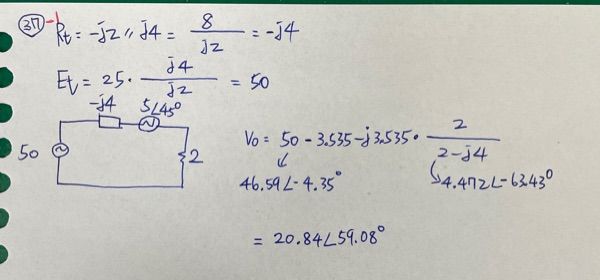 37-1 Rt = -j2 // j4 = 8/j2 = -j4
Et = 25 · j4/j2 = 50
-j4 5∠45°
50 2
Vo = 50 - 3.535 - j3.535 · 2/(2-j4)
46.59∠-4.35° 4.472∠-63.43°
= 20.84∠59.08°